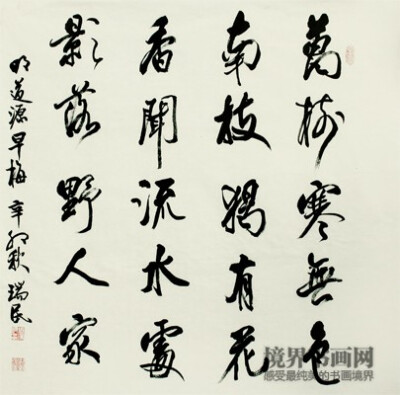 萬樹寒無色
南枝獨有花
香聞流水處
影落野人家
明道源早梅 辛卯秋 瑞民
境界书画网
感受最纯美的书画境界